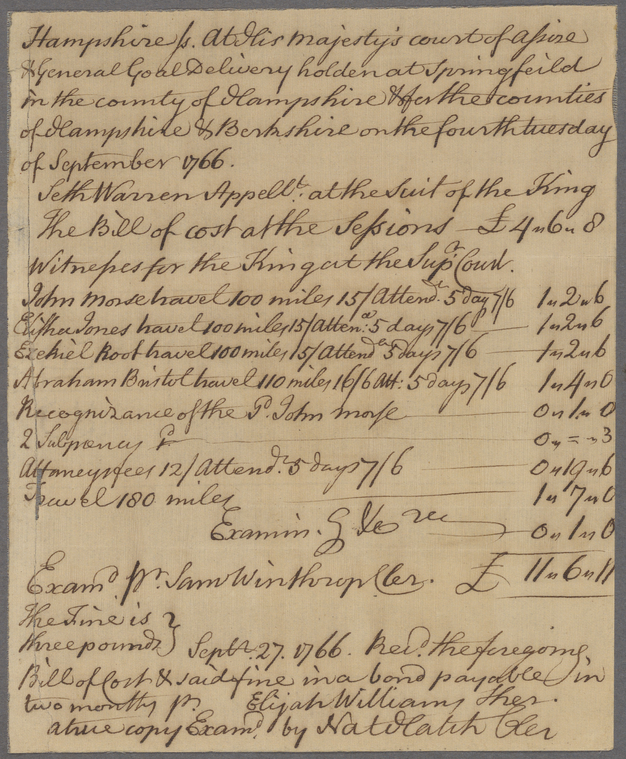 Hampshire ss. At His Majesty's court of Assize
& General Goal Delivery holden at Springfeild
in the county of Hampshire & for the counties
of Hampshire & Berkshire on the fourth tuesday
of September 1766.
Seth Warren Appellt. at the Suit of the King
The Bill of cost at the Sessions £ 4 " 6 " 8
Witnesses for the King at the Supr. Court.
John Morse travel 100 miles 15/ Attendce. 5 days 7/6 1 " 2 " 6
Elisha Jones travel 100 miles 15/ Attence. 5 days 7/6 1 " 2 " 6
Ezekiel Root travel 100 miles 15/ Attendce 5 days 7/6 1 " 2 " 6
Abraham Bristol travel 110 miles 16/6 Att: 5 days 7/6 1 " 4 " 0
Recognizance of the Sd. John Morse 0 " 1 " 0
2 Subpoenas 0 " = " 3
Attorneys fees 12/ Attendce. 5 days 7/6 0 " 19 " 6
Travel 180 miles 1 " 7 " 0
Examin. 0 " 1 " 0
Examd. pr. Sam Winthrop Cler. £ 11 " 6 " 11
The Fine is }
three pounds } Septr. 27. 1766. Recd. the foregoing
Bill of Cost & said fine in a bond payable in
two months pr. Elijah Williams Sher.
a true copy Examd. by Nat Hatch Cler